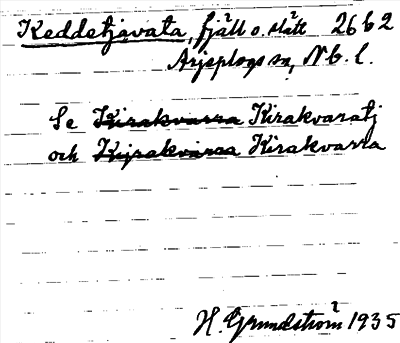 Keddetjåvata, fjäll o. slätt 26 C 2
Arjeplogs sn, Nb. l.
Se Kirakvarra Kirakvaratj
och Kirakvarra Kirakvarra
H. Grundström 1935